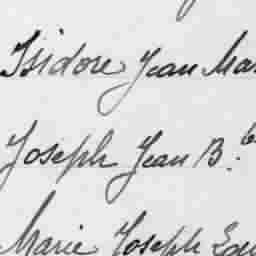 Isidore Jean Mar
Joseph Jean B.te
Marie Joseph Edu